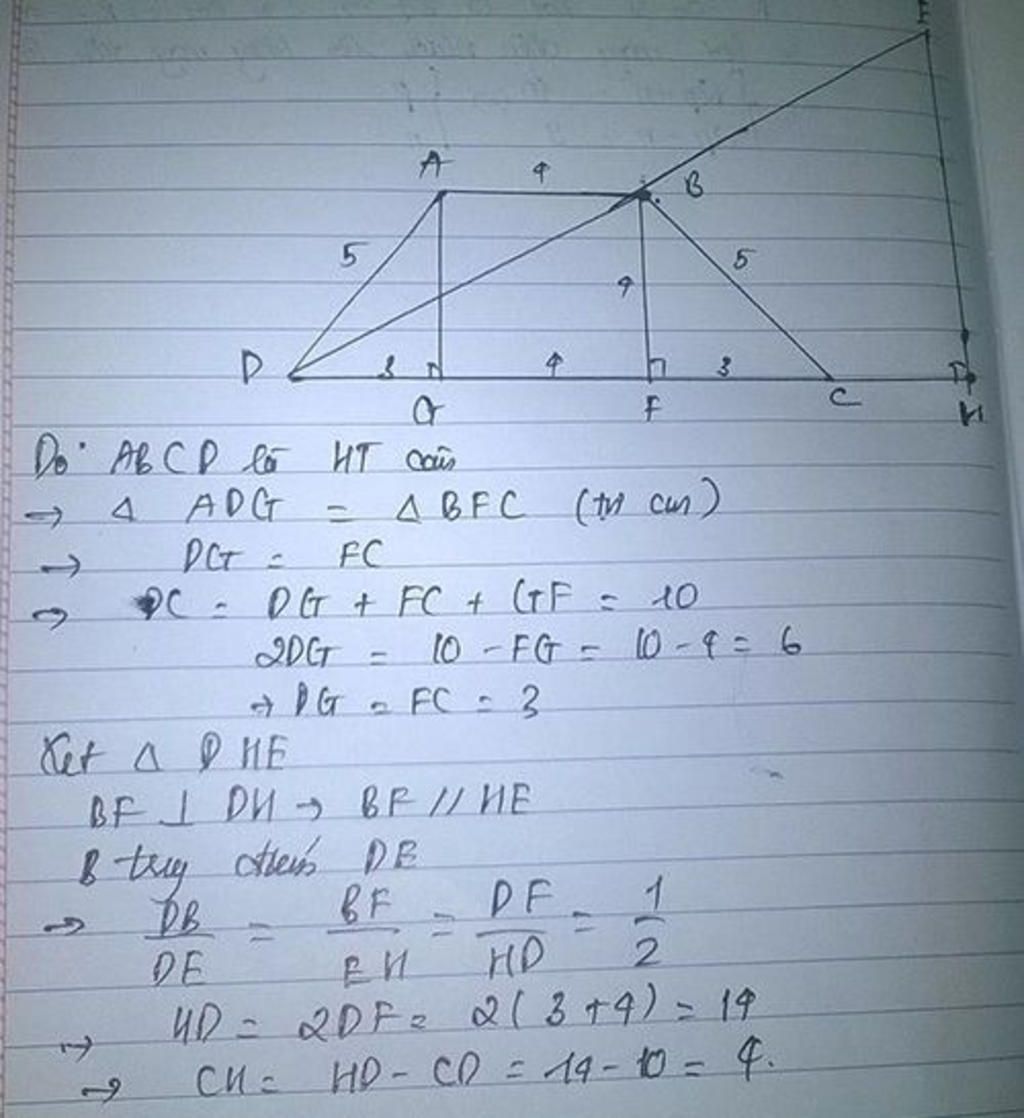 A 4 B
5 4 5
D 3 G 4 F 3 C H
Do ABCD là HT cân
→ Δ ADG = Δ BFC
→ DG = FC
→ DC = DG + FC + GF = 10
2DG = 10 - FG = 10 - 4 = 6
→ DG = FC = 3
Xét Δ DHE
BF ⊥ DH → BF // HE
B DE
→ DB/DE = BF/EH = DF/HD = 1/2
→ HD = 2DF = 2(3+4) = 14
→ CH = HD - CD = 14 - 10 = 4.